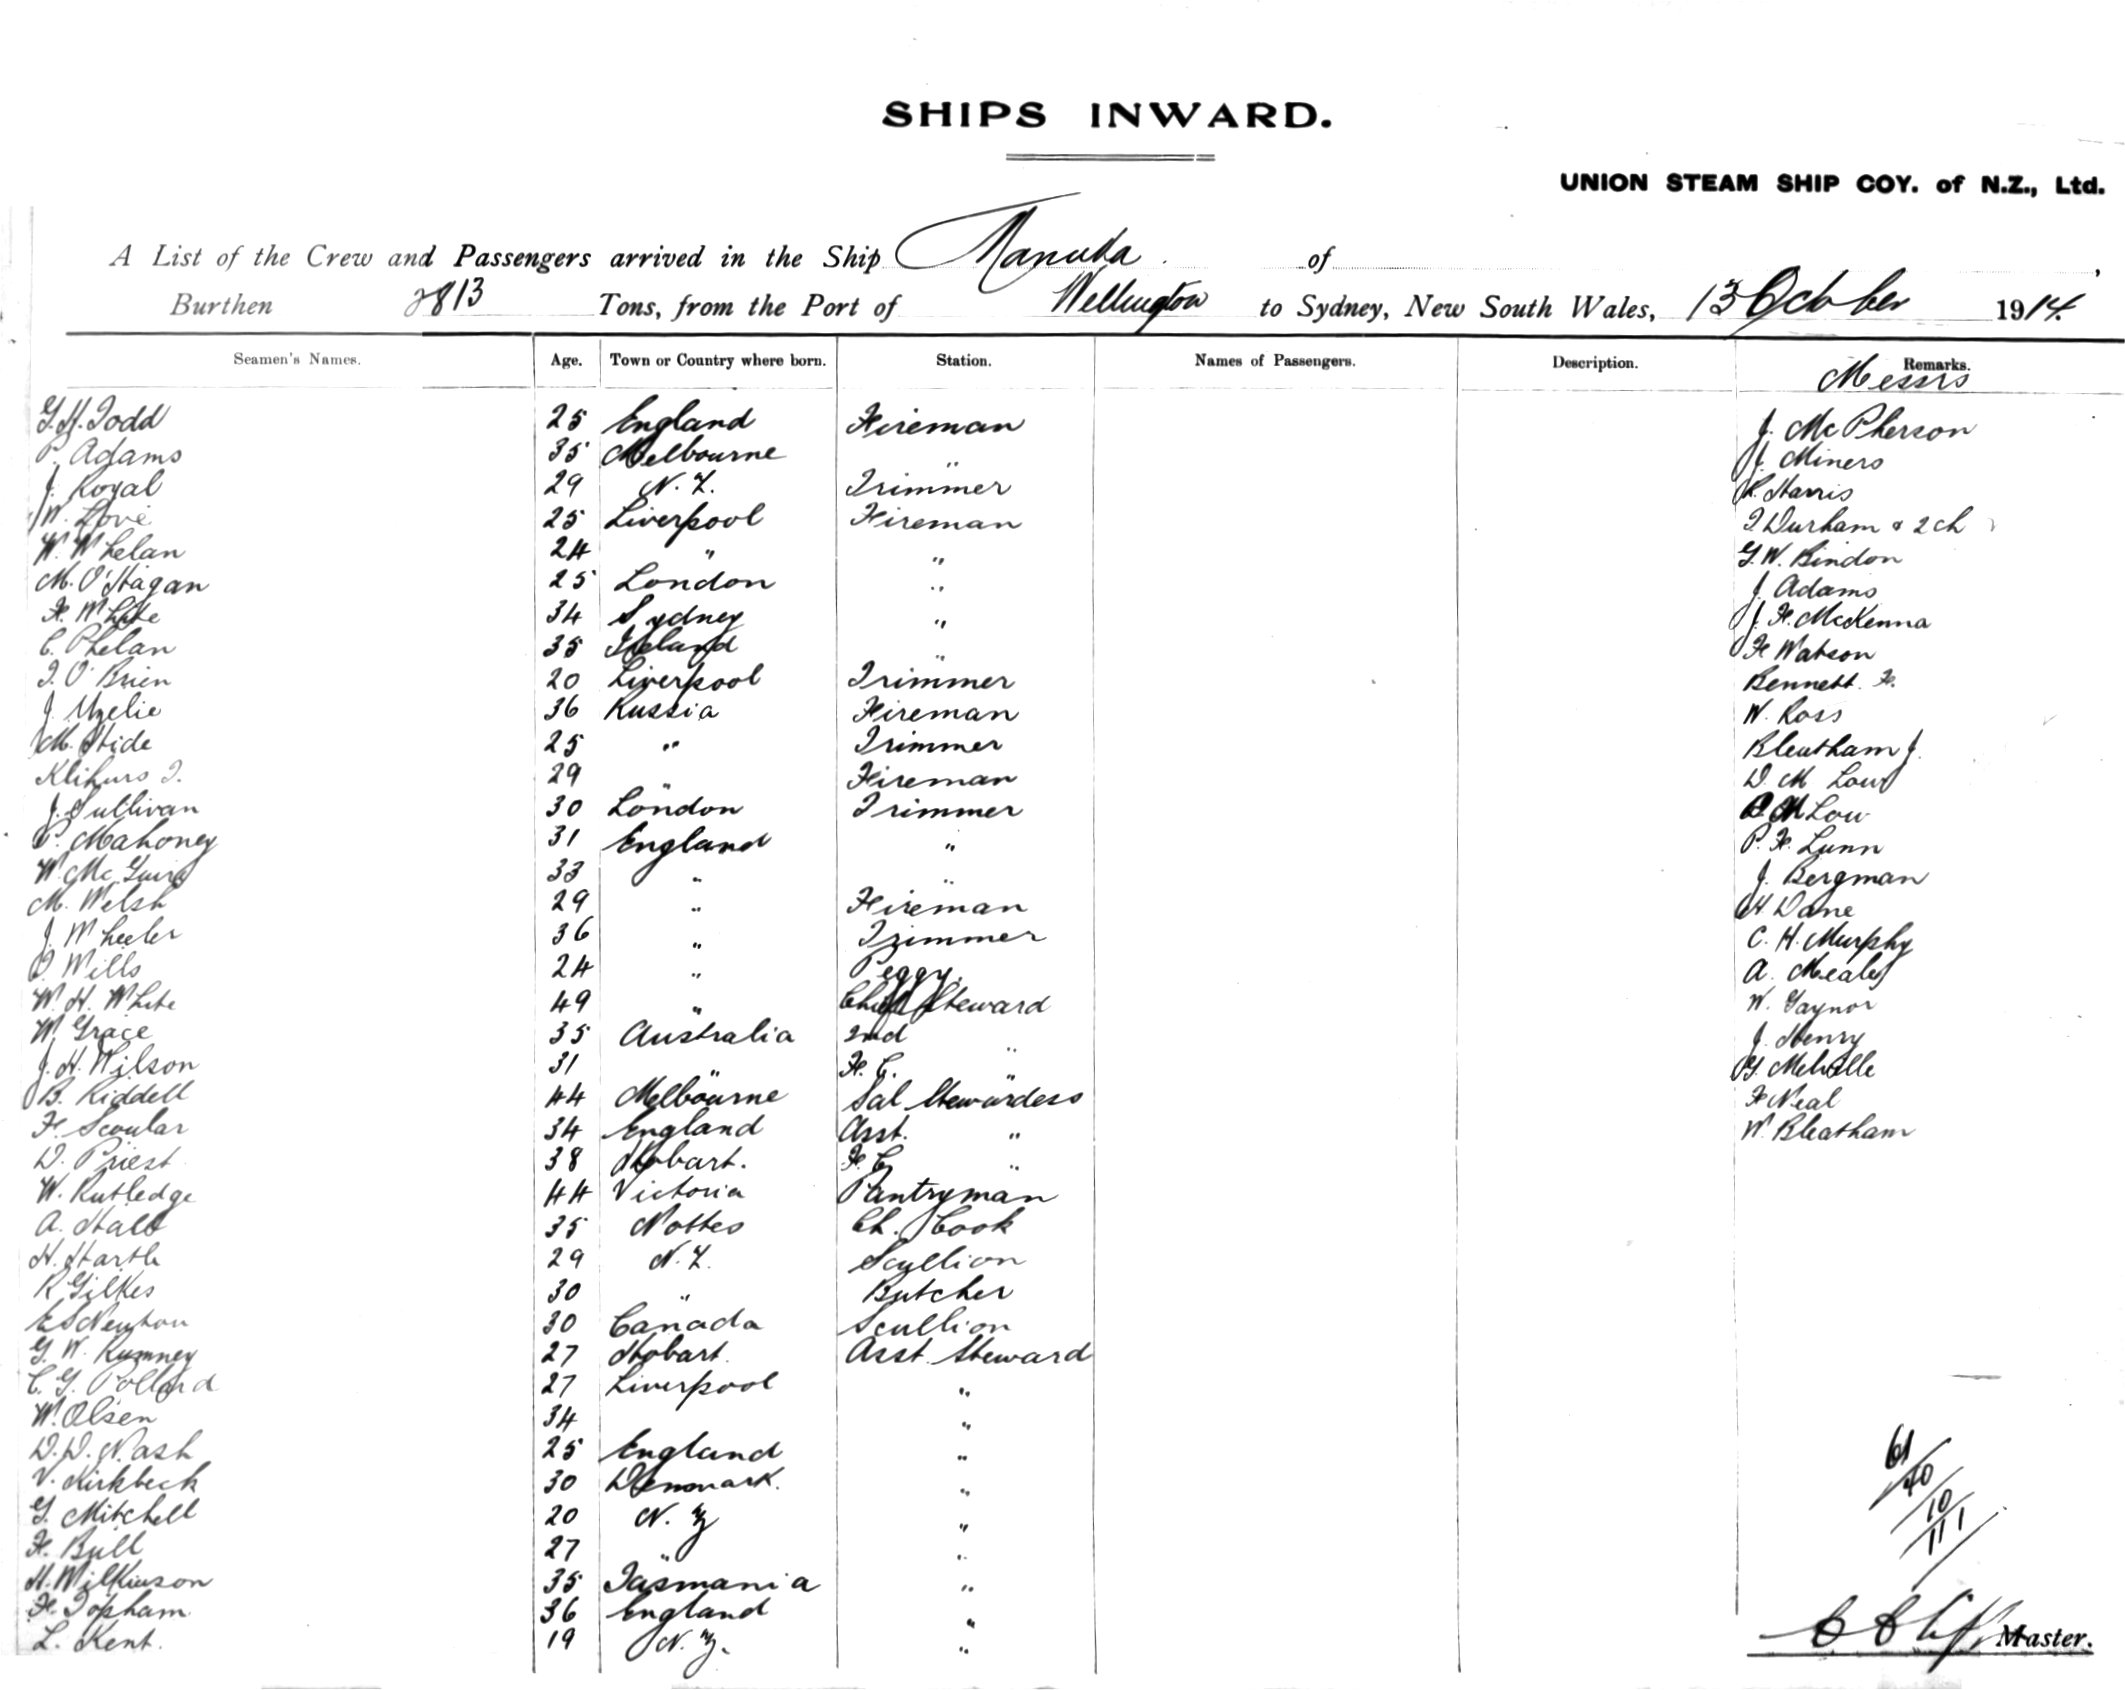 SHIPS INWARD.
UNION STEAM SHIP COY. of N.Z., Ltd.
A List of the Crew and Passengers arrived in the Ship Manuka of
Burthen 2813 Tons, from the Port of Wellington to Sydney, New South Wales, 13 October 1914.
Seamen's Names. Age. Town or Country where born. Station. Names of Passengers. Description. Remarks.
Messrs
G. H. Todd 25 England Fireman J. McPherson
P. Adams 35 Melbourne " J. Miners
J. Royal 29 N.Z. Trimmer R. Harris
W. Love 25 Liverpool Fireman T. Durham & 2 ch
W. Whelan 24 " " G. W. Bindon
M. O'Hagan 25 London " J. Adams
F. White 34 Sydney " J. F. McKenna
C. Phelan 35 Ireland " F Watson
T. O'Brien 20 Liverpool Trimmer Bennett. F.
J. 36 Russia Fireman W. Ross
M. Hide 25 " Trimmer Bleatham J.
29 " Fireman D. M Low
J. Sullivan 30 London Trimmer M Low
P. Mahoney 31 England " P. F. Lunn
W. McGuire 33 " " J. Bergman
M. Welsh 29 " Fireman H Dane
J. Wheeler 36 " Trimmer C. H. Murphy
P. Wills 24 " Peggy. A. Meale
W. H. White 49 " Chief Steward W. Gaynor
W. Grace 35 Australia 2nd " J. Henry
J. H. Wilson 31 " F. C. " G. Melville
B. Riddell 44 Melbourne Sal Stewardess F Neal
F. Scoular 34 England Asst. " W. Bleatham
D. Priest 38 Hobart. F. C. "
W. Rutledge 44 Victoria Pantryman
A. Hall 35 Nottes Ch. Cook
H. Hartle 29 N.Z. Scullion
R Gilkes 30 " Butcher
E S Newton 30 Canada Scullion
G. W. Rumney 27 Hobart. Asst. Steward
C. G. Pollard 27 Liverpool "
W. Olsen 34 "
D. D. Nash 25 England "
V. Kirkbeck 30 Denmark. "
G. Mitchell 20 N. Z "
F. Bull 27 " "
H. Wilkinson 35 Tasmania "
F. Topham 36 England "
L. Kent. 19 N. Z. "
61
40
10
111
Master.